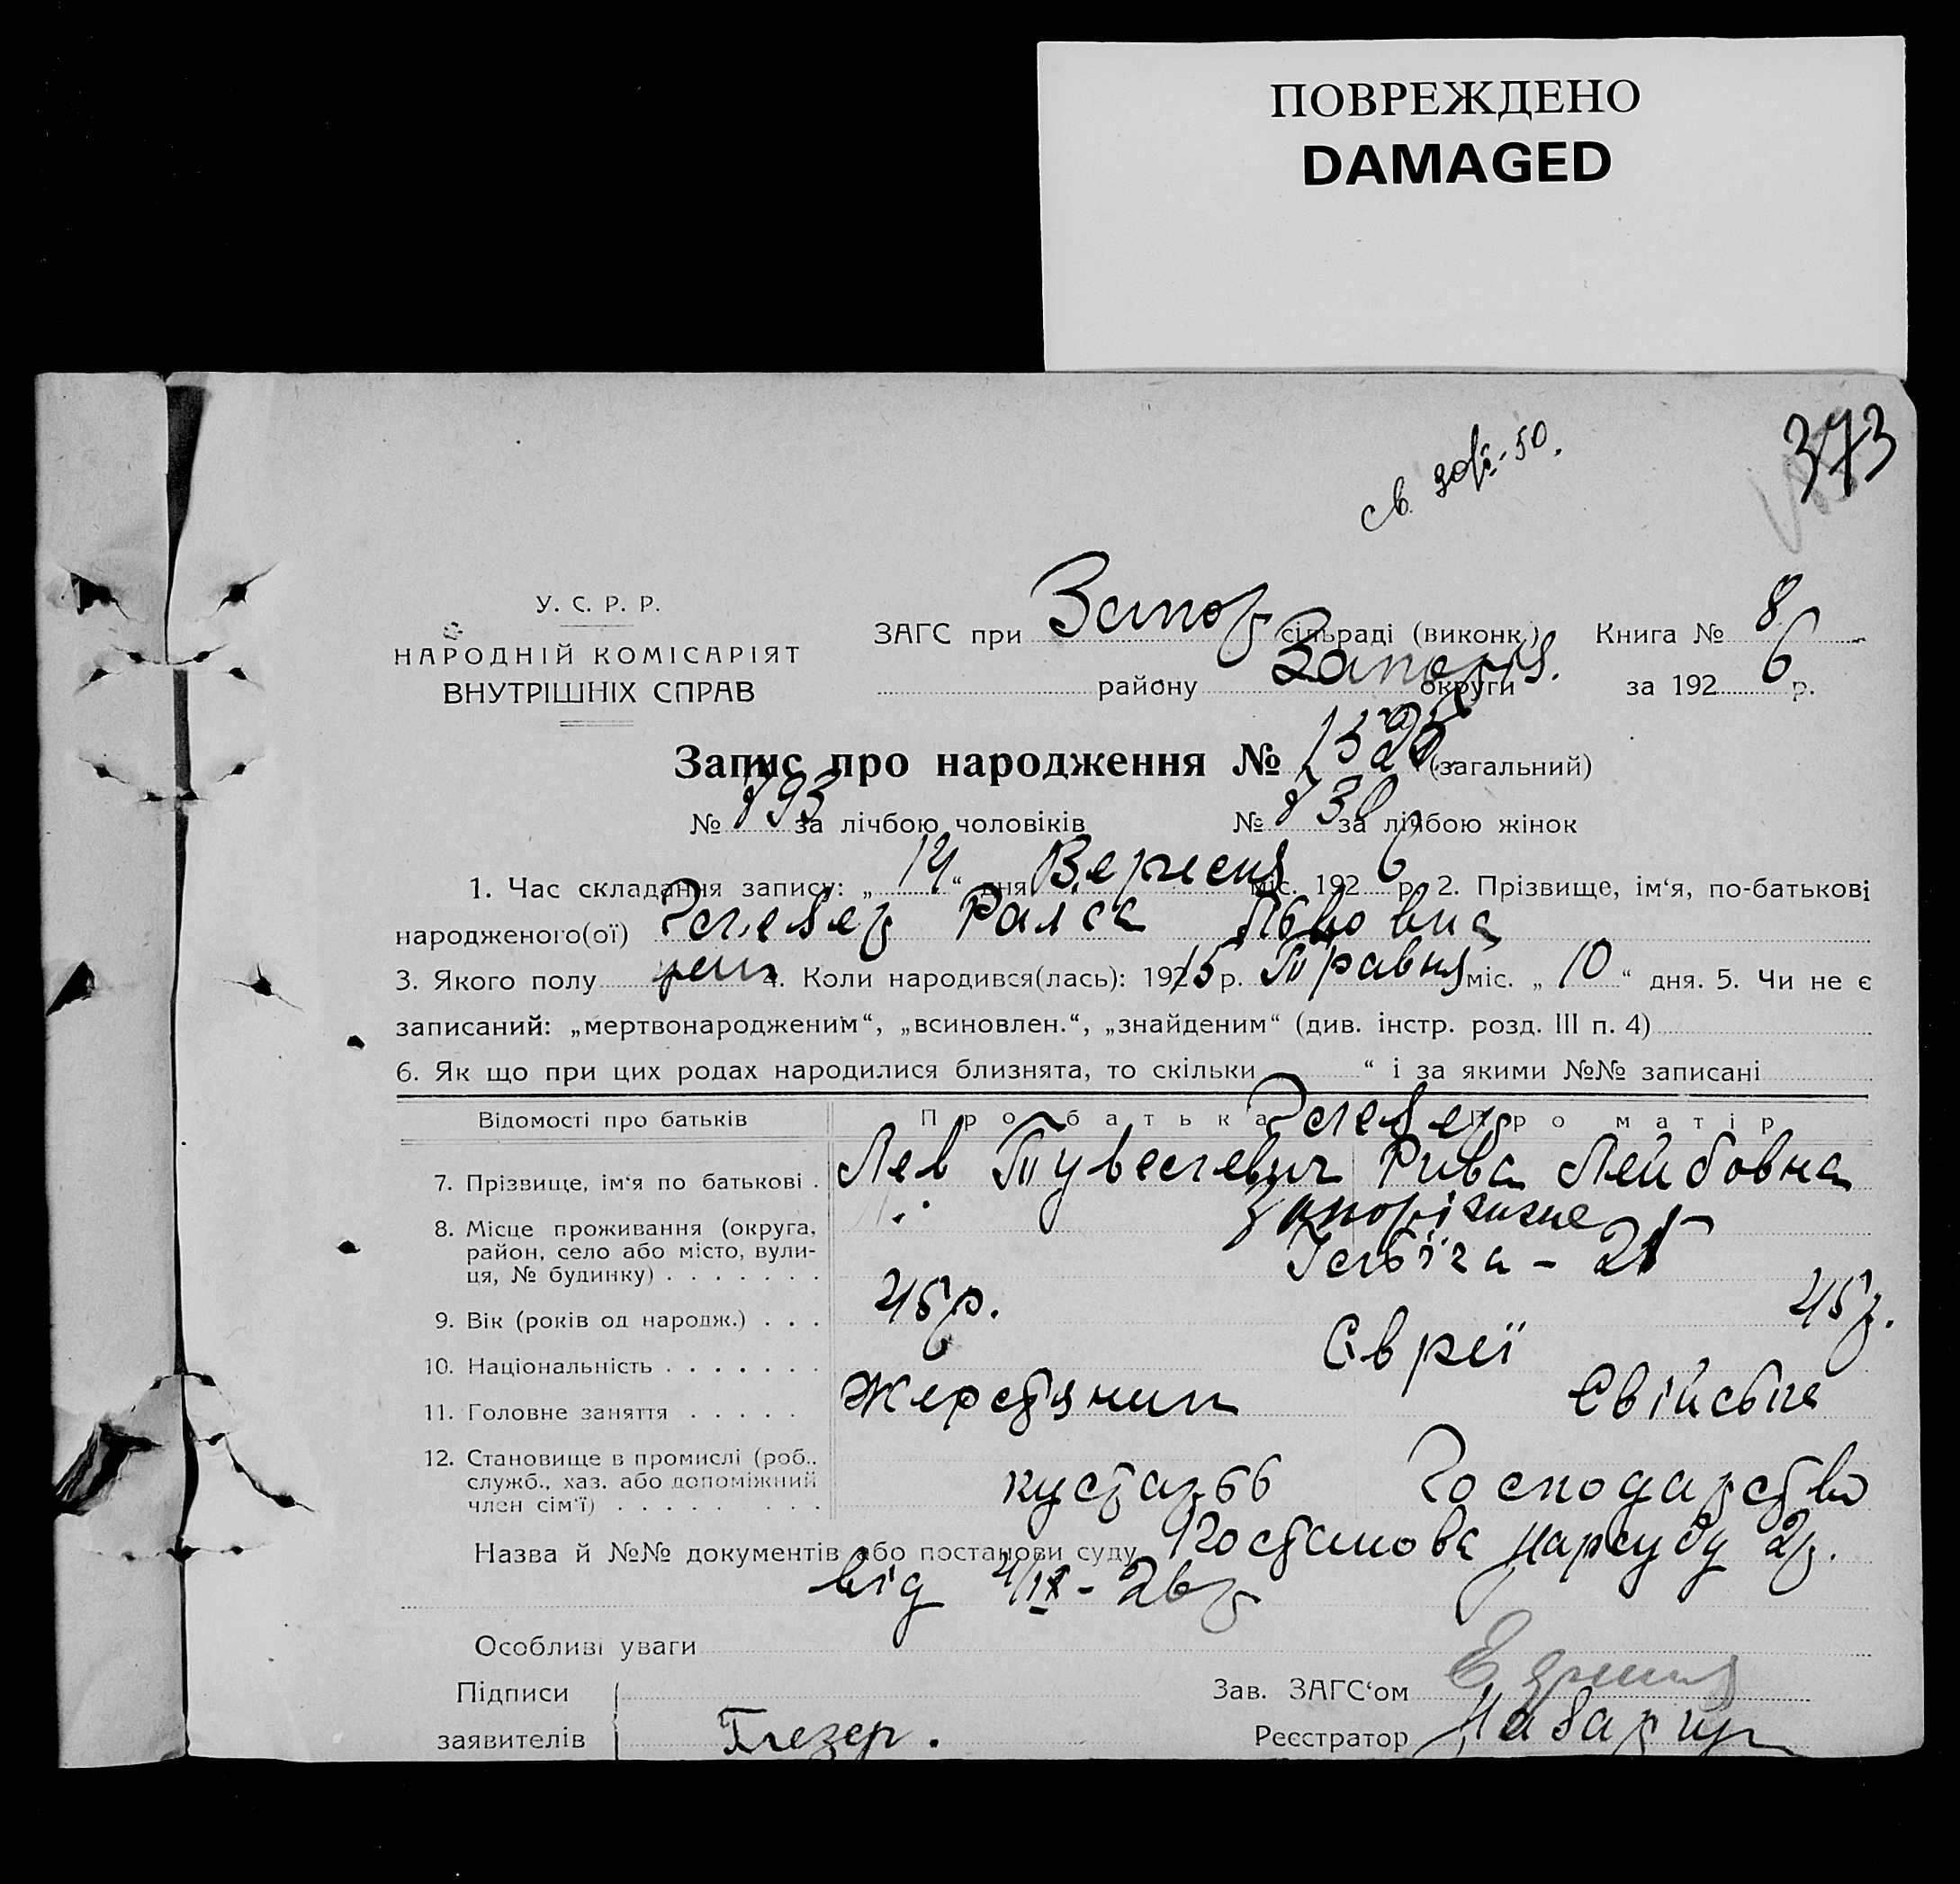 ПОВРЕЖДЕНО
DAMAGED
373
св. -50.
У. С. Р. Р.
НАРОДНІЙ КОМІСАРІЯТ
ВНУТРІШНІХ СПРАВ
ЗАГС при Запор сільраді (виконк.) Книга № 8
району Запоріз. округи за 1926 р.
Запис про народження № (загальний)
№ 793 за лічбою чоловіків № 730 за лічбою жінок
1. Час складання запису: „14“ дня Вересня міс. 1926 р. 2. Прізвище, ім‘я, по-батькові
народженого(ої) Глезер Раїса Львовна
3. Якого полу жін 4. Коли народився(лась): 1915 р. Травня міс. „10“ дня. 5. Чи не є
записаний: „мертвонародженим“, „всиновлен.“, „знайденим“ (див. інстр. розд. III п. 4)
6. Як що при цих родах народилися близнята, то скільки “ і за якими №№ записані
Відомості про батьків Про батька Про матір
Глезер
7. Прізвище, ім‘я по батькові . Лев Рива Лейбовна
8. Місце проживання (округа, район, село або місто, вулиця, № будинку) . . . . . . . Запоріжжя
Ілліча - 21
9. Вік (років од народж.) . . . 45 р. 45 р.
10. Національність . . . . . . . Євреї
11. Головне заняття . . . . . Жерстяник Свійське
12. Становище в промислі (роб., служб., хаз. або допоміжний член сім‘ї) . . . . . . . . кустарь Господарство
Назва й №№ документів або постанови суду Постанова Нарсуду 2р.
від 4/IX-26р
Особливі уваги
Підписи Зав. ЗАГС‘ом
заявителів Глезер. Реєстратор